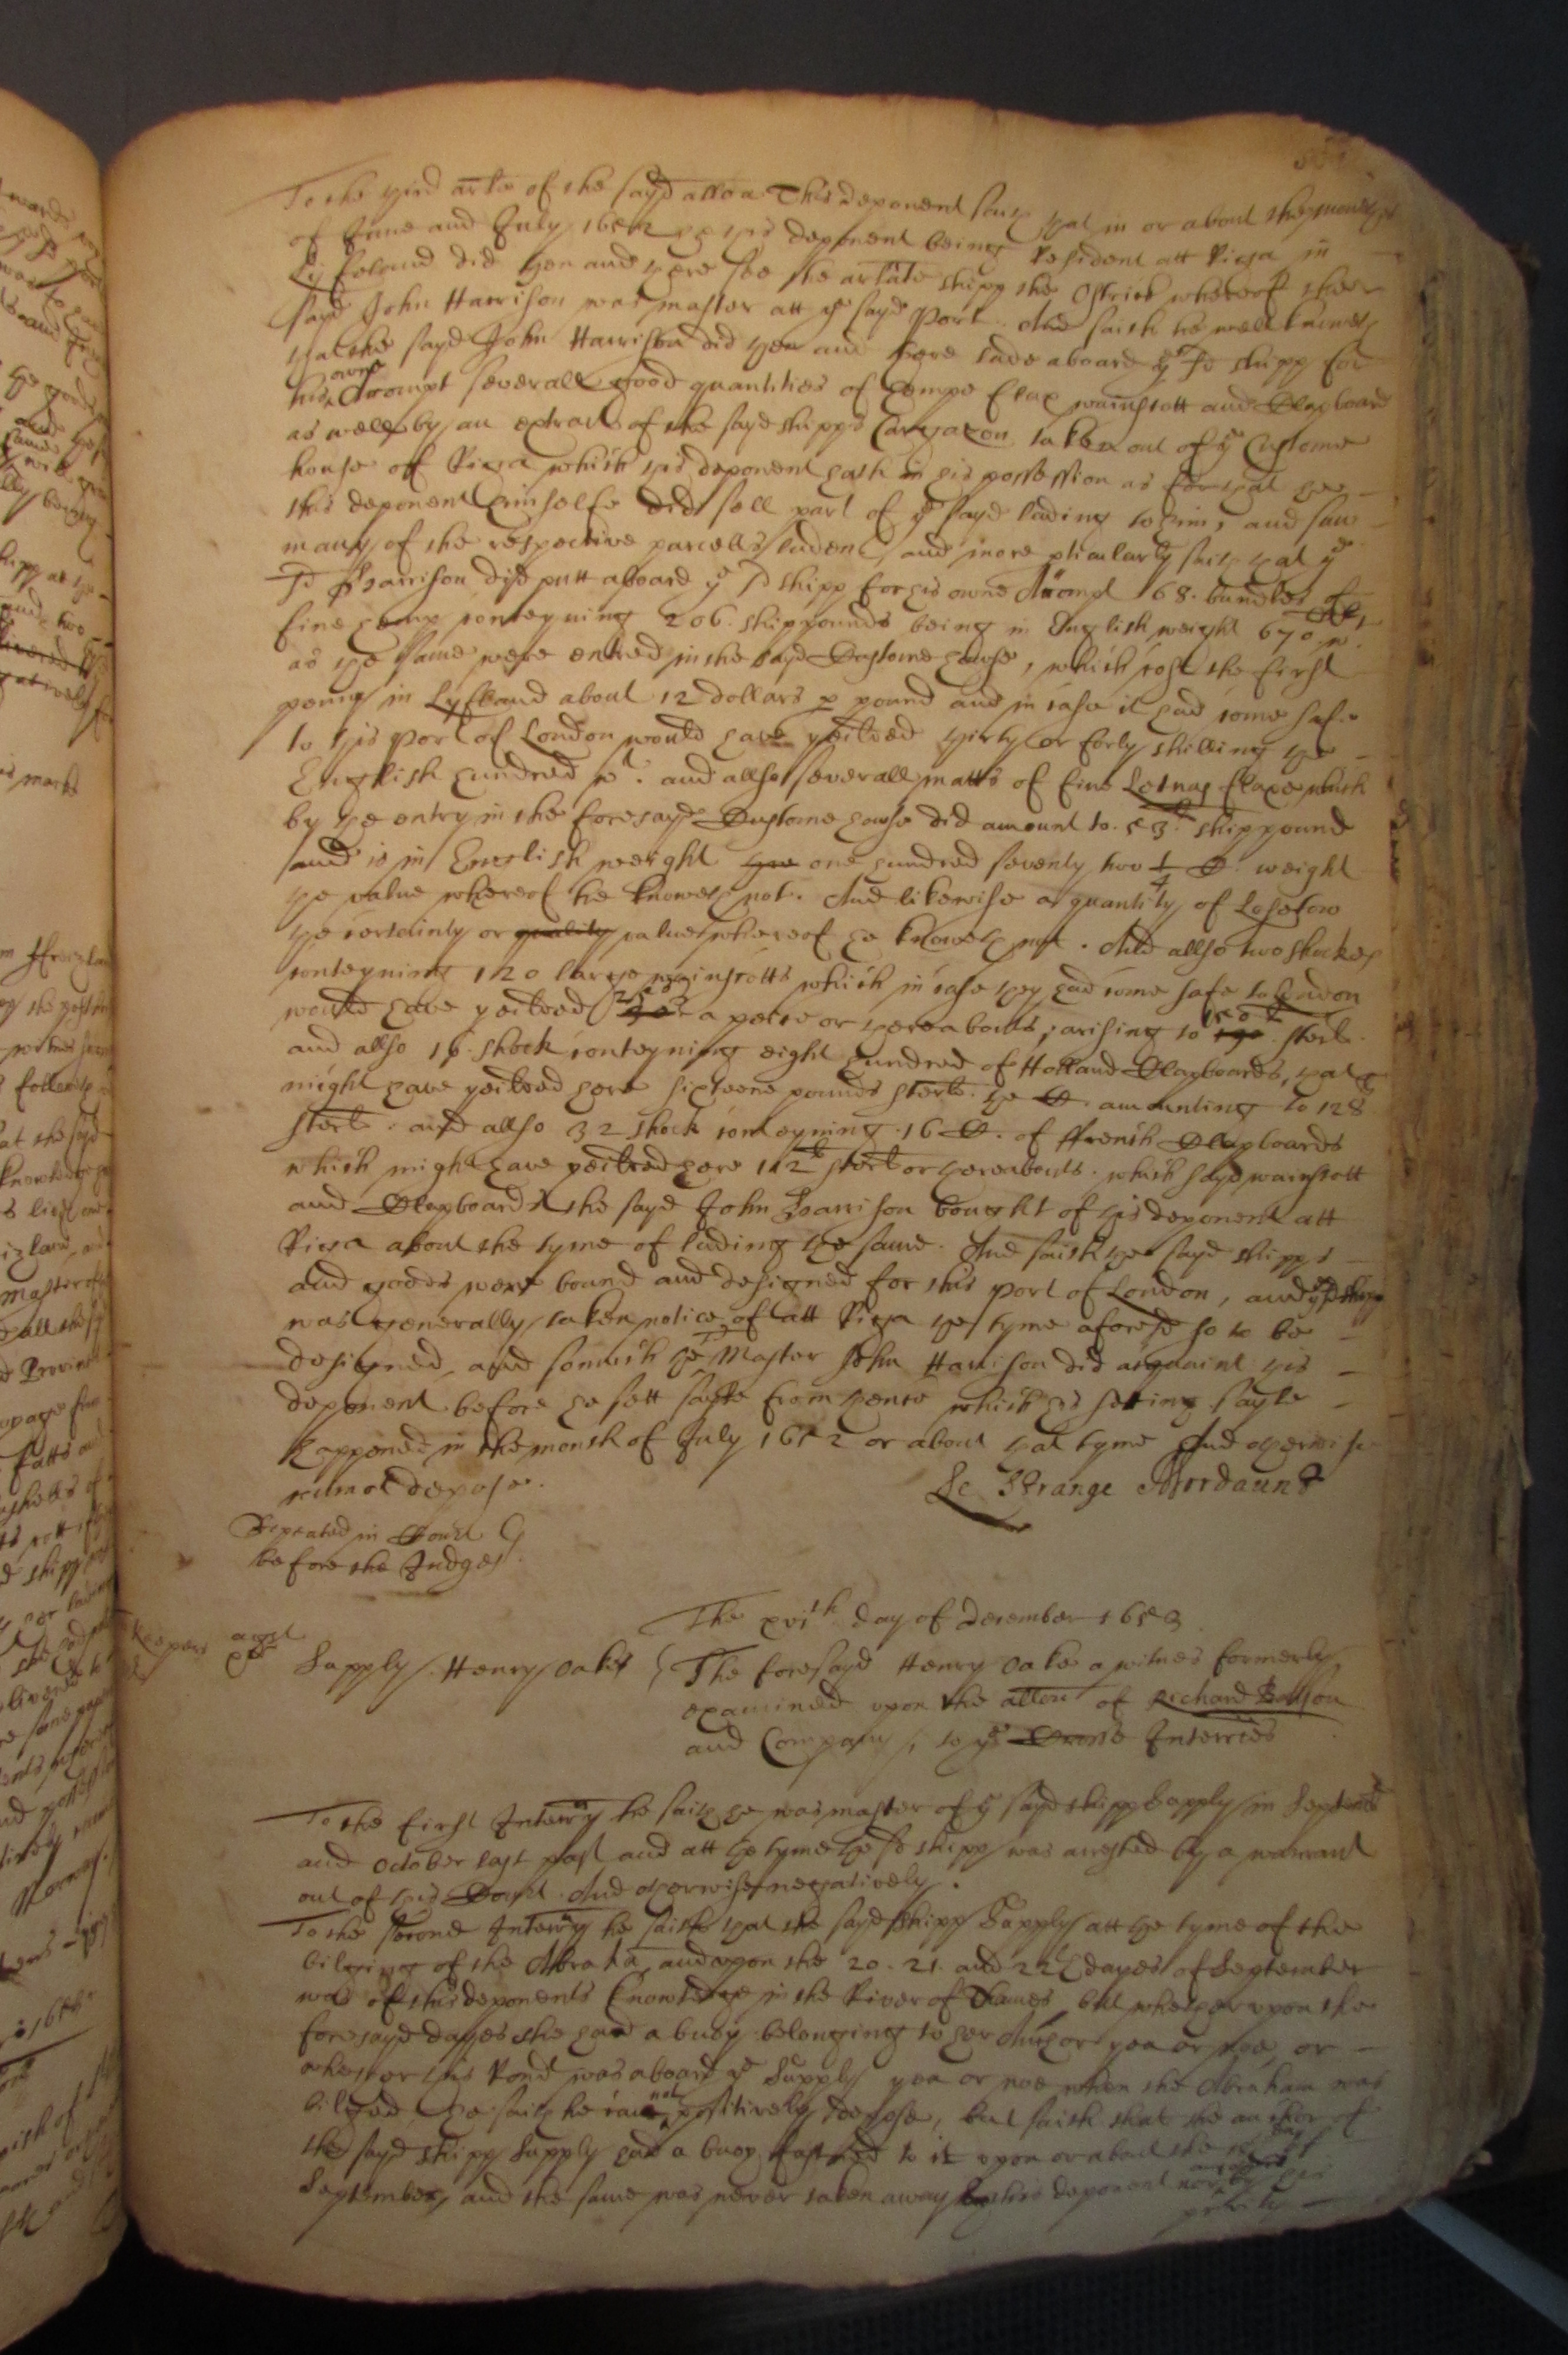 To the third arle of the sayd alloa This deponent saith that in or about the moneths
of June and July 1652 he this deponent being resident att Riga in
Lifeland did then and there see the arlate shipp the Ostrich whereof the
sayd John Harrison was master att ye sayd Port. And saith he well knoweth
that the sayd John Harrison did then and there lade aboard ye sd shipp for
his owne Accompt severall good quantities of hempe flax wainscott and Clapboard
as well by an extract of the sayd shipps Cargazon taken out of ye Custome
house of Riga which this deponent hath in his possession as for that hee
this deponent himselfe did sell part of ye sayd lading to him, and saw
many of the respective parcells laden, and more pticularly saith that ye
sd Harrison did putt aboard ye sd shipp for his owne Accompt 168. bundles of
fine hemp conteyning 206. shippounds being in English weight 670 Ct wt
as the same were entred in the sayd Custome house, which cost the first
peny in Lyfland about 12 dollars p pound and in case it had come safe
to this port of London would have yeilded thirty or forty shilling the
English hundred wt. and allso severall matts of fine Letnag flaxe which
by the entry in the foresayd Custome house did amount to. 53. shippound
and is in English weight the one hundred seventy two 1/4 C. weight
the value whereof he knoweth not. And likewise a quantity of Losetow
the certainty or quality value whereof he knoweth not. And allso two shockes
conteyning 120 large wainscotts which in case they had come safe to London
would have yeilded 25s a peece or thereabouts, arising to 150 li sterl.
and allso 16. shock conteyning eight hundred of Holland Clapboards, that
might have yeilded here sixteene pounds sterl. the C. amounting to 128 li
sterl. and allso 32 shock conteyning. 16 C. of ffrench Clapboards
which might have yeilded here 112 li sterl or thereabouts. which sayd wainscott
and Clapboards the sayd John Harrison bought of this deponent att
Riga about the tyme of lading the same. And saith the sayd shipps
and goods were bound and designed for this port of London, and ye sd shipp
was generally taken notice of att Riga the tyme aforesd so to be
designed, and somuch the sd Master John Harrison did acquaint this
deponent before he sett sayle from thence which his setting sayle
happened in the moneth of July 1652 or about that tyme And otherwise
cannot depose.
Le Strange Mordaunt
Repeated in Court
before the Judges.
The xvith day of december 1653.
Keepers agst
Supply. Henry Oakes
The foresayd Henry Oake a witnes formerly
examined upon the allon of Richard Batson
and Company, to ye Crosse Interries
To the first Interry he saith he was master of ye sayd shipp Supply in September
and October last past and att the tyme the sd shipp was arrested by a warrant
out of this Court. And otherwise negatively.
To the second Interry he saith that the sayd shipp Supply att the tyme of the
bilging of the Abraha, and upon the 20. 21. and 22th dayes of September
was of this deponents knowledge in the River of Thames, but whether upon the
foresayd dayes she had a buoy belonging to her Anchor yea or noe, or
whether his Rond was aboard ye Supply yea or noe when the Abraham was
bilged, he saith he can not positively depose, but saith that the anchor of
the sayd shipp Supply had a buoy fastned to it upon or about the day of
September, and the same was never taken away by this deponent nor by his
privity